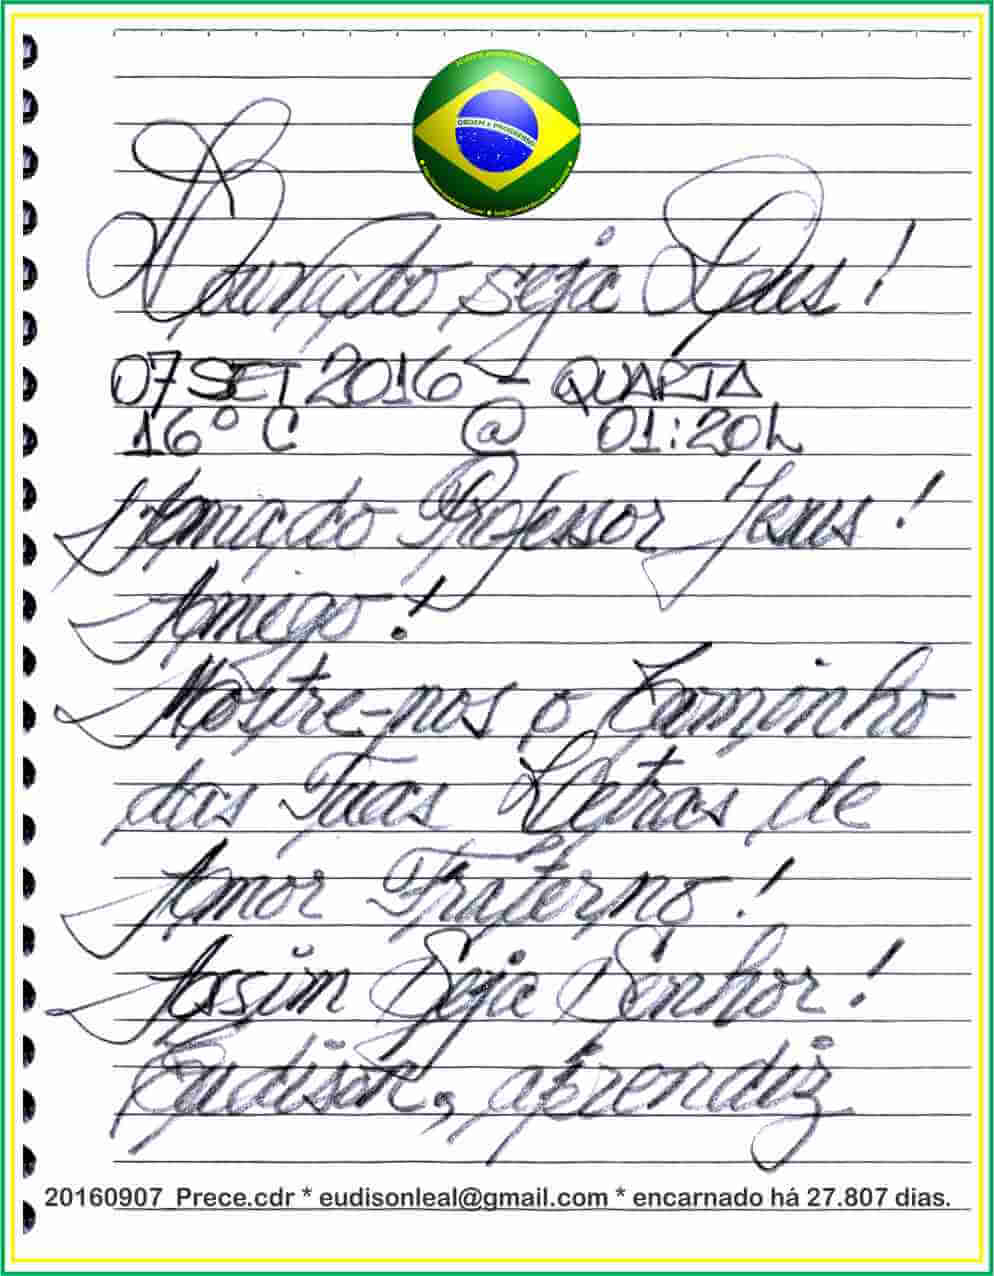 ORDEM E PROGRESSO
Louvado seja Deus!
07 SET 2016 - QUARTA
16° C @ 01:20h
Amado Professor Jesus!
Amigo!
Mostre-nos o Caminho
das Tuas Letras de
Amor Fraterno!
Assim Seja Senhor!
Eudison, aprendiz
20160907_Prece.cdr * eudisonleal@gmail.com * encarnado há 27.807 dias.